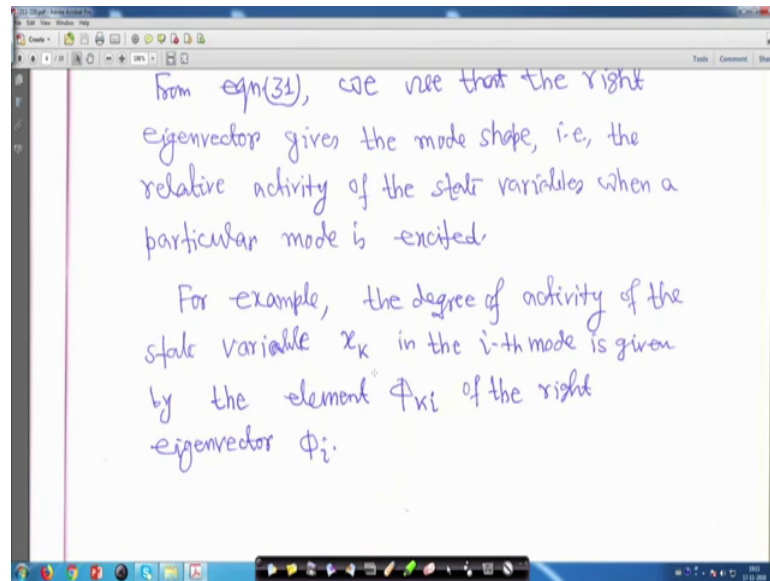 211-220.pdf - Adobe Acrobat Pro
File Edit View Window Help
Create
Tools Comment Share
From eqn(31), we see that the right
eigenvector gives the mode shape, i.e., the
relative activity of the state variables when a
particular mode is excited.
For example, the degree of activity of the
state variable xₖ in the i-th mode is given
by the element Φₖᵢ of the right
eigenvector Φᵢ.